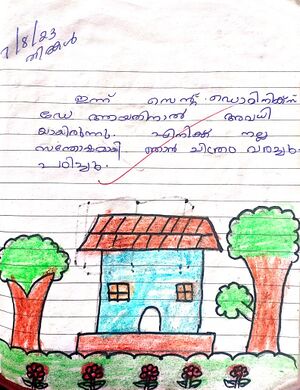 7/8/23
തിങ്കൾ
ഇന്ന് സെന്റ് ഡൊമിനിക്സ്
ഡേ ആയതിനാൽ അവധി
യായിരുന്നു. എനിക്ക് നല്ല
സന്തോഷമായി. ഞാൻ ചിത്രം വരച്ചു.
പഠിച്ചു.